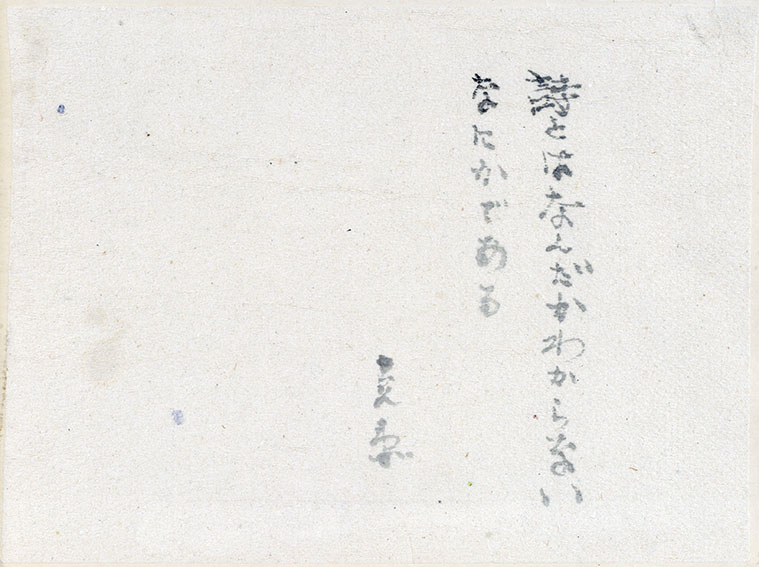 詩とはなんだかわからない
なにかである
克衛